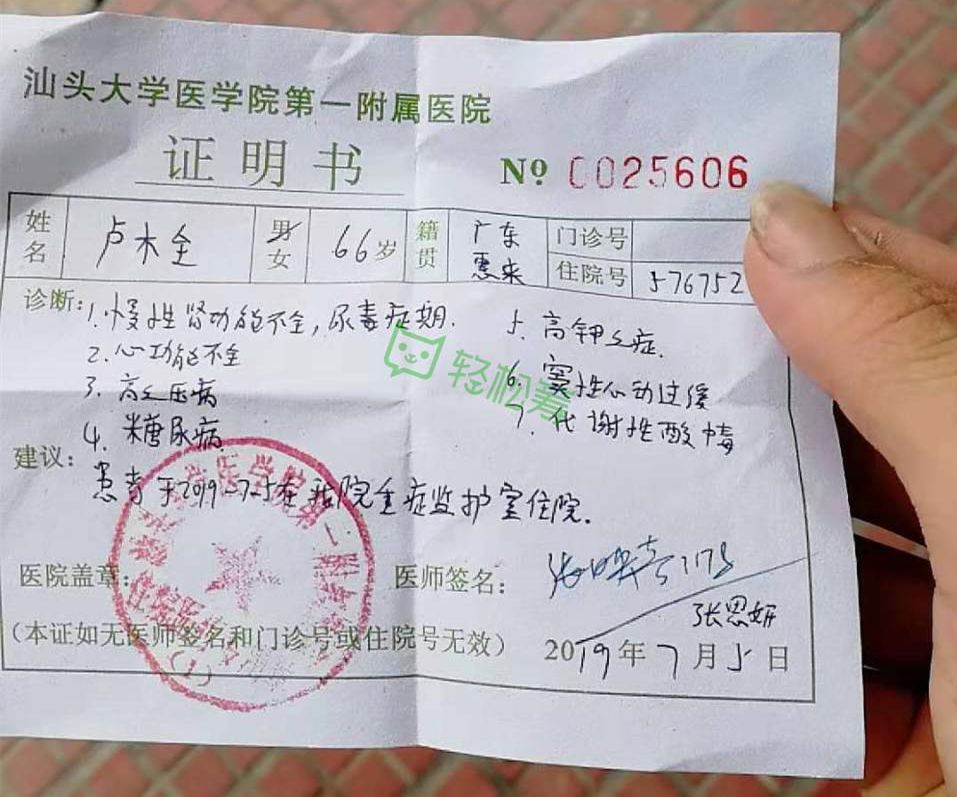 汕头大学医学院第一附属医院
证明书
№ 0025606
姓名 卢木全 男女 66岁 籍贯 广东惠来 门诊号
住院号 576752
诊断:1.慢性肾功能不全,尿毒症期.
2.心功能不全
3.高血压病
4.糖尿病
5.高钾血症.
6.窦性心动过缓
7.代谢性酸中毒
轻松筹
建议:
患者于2019-7-5在我院重症监护室住院.
医院盖章:
医师签名:
张思妍
(本证如无医师签名和门诊号或住院号无效)
2019年7月5日